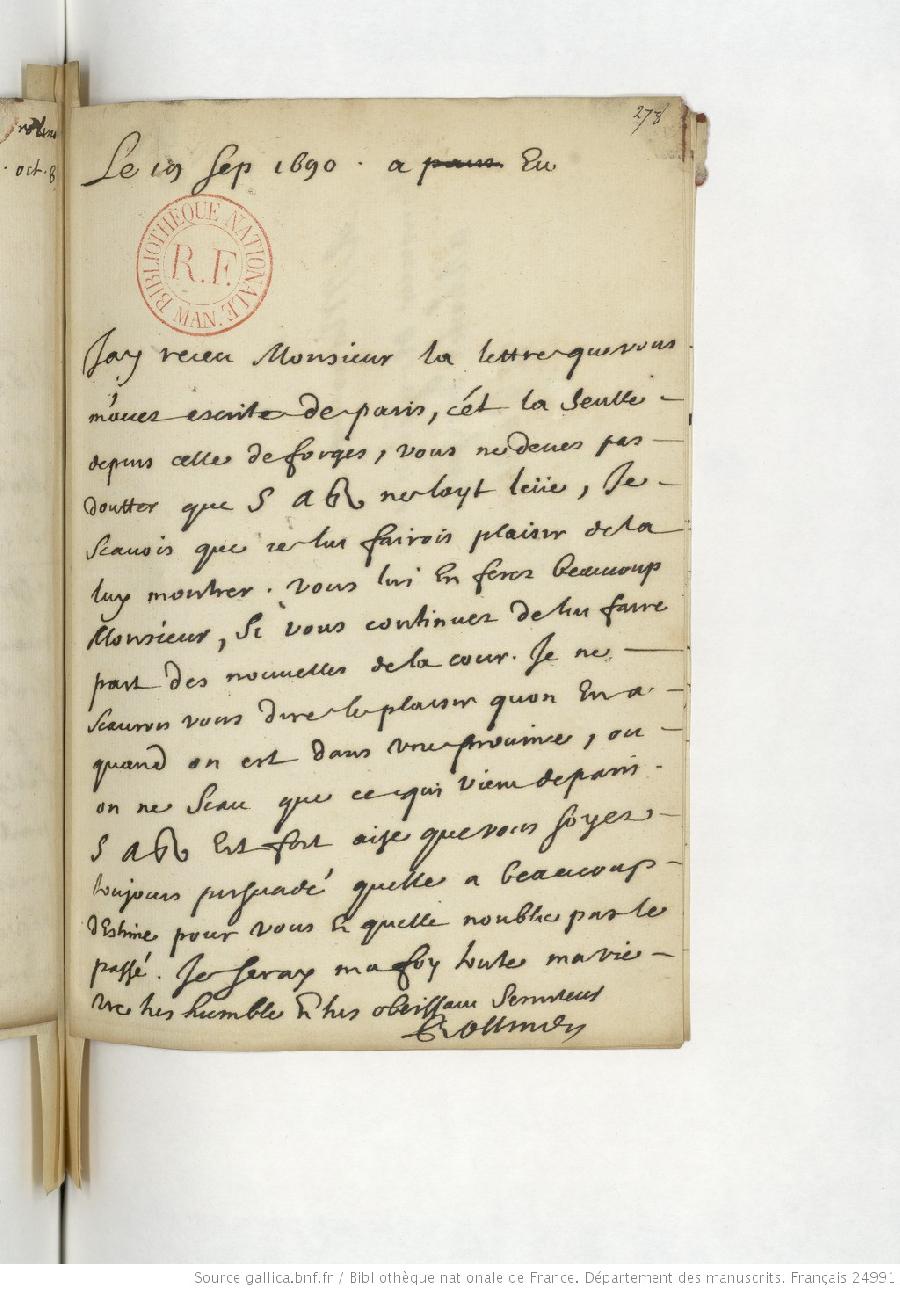 278
Le 19 Sep 1690 . a paris Eu
oct. 8
BIBLIOTHÈQUE NATIONALE
R.F.
MAN.
Jay receu Monsieur la lettre que vous
m'aues escrite de paris, cét la Seulle
depuis celle de forges, vous ne deues pas
doutter que S A R ne layt leüe, Je
scauois que ie luy fairois plaisir de la
luy montrer. vous lui En feres beaucoup
Monsieur, Si vous continues de luy faire
part des nouuelles de la cour. Je ne
scaurois vous dire le plaisir quon En a
quand on est dans vne prouince, ou
on ne Scau que ce qui vient de paris.
S A R Est fort aise que vous soyes
toujours persuadé quelle a beaucoup
dEstime pour vous & quelle noublie pas le
passé. Je seray ma foy toute ma vie
vre tres humble & tres obeissant Seruiteur
Source gallica.bnf.fr / Bibliothèque nationale de France. Département des manuscrits. Français 24991